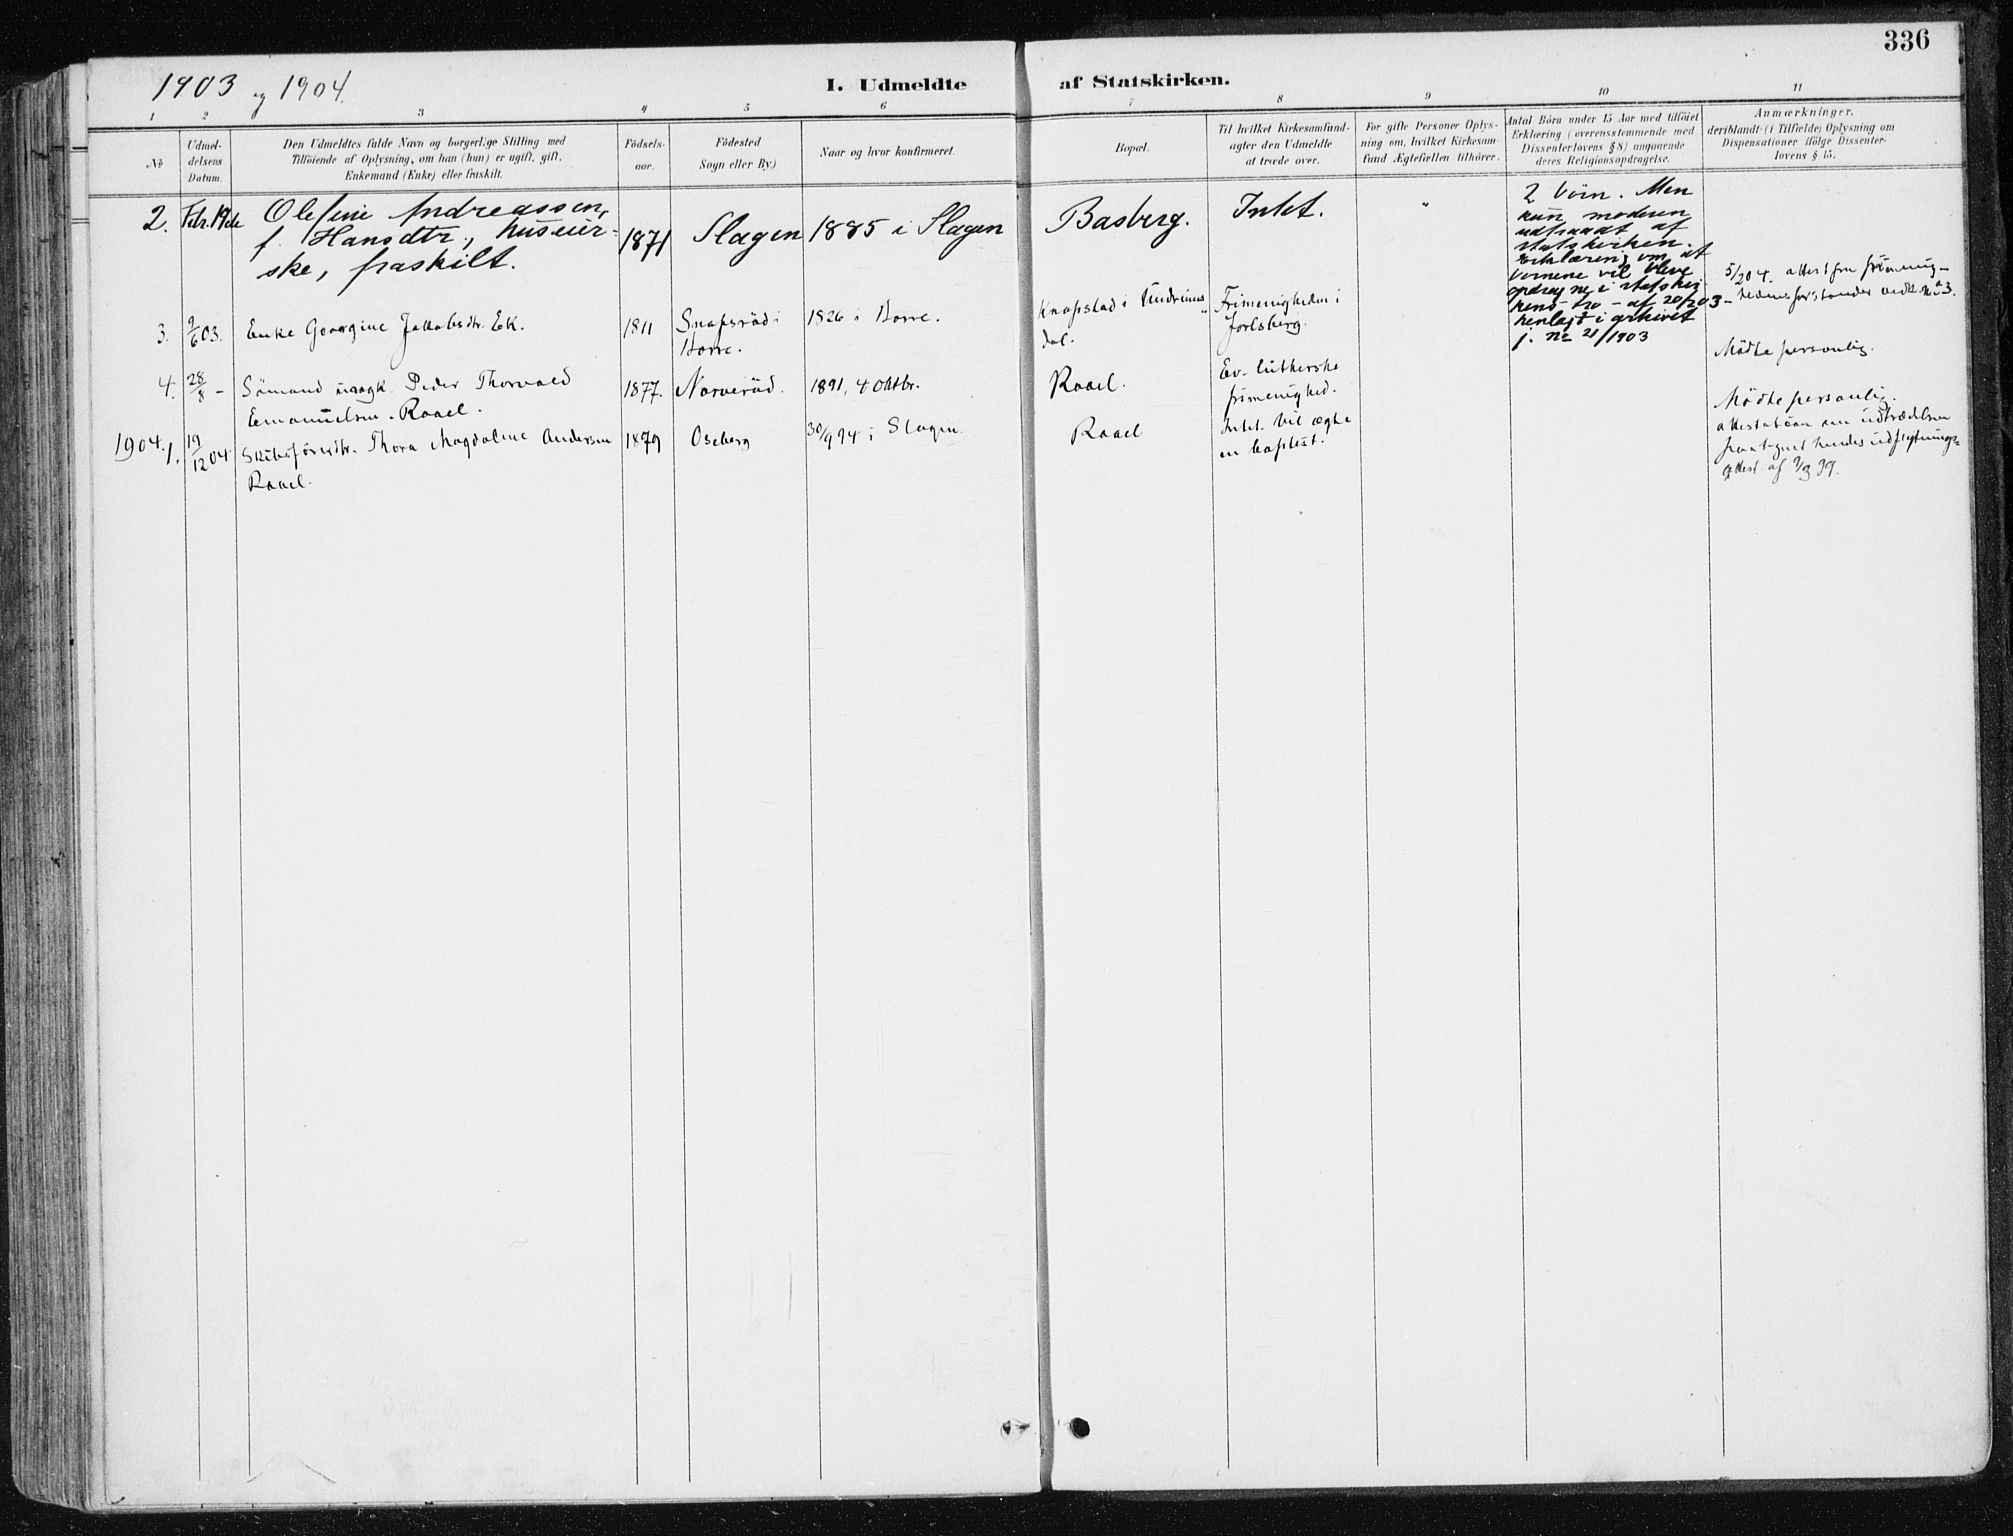 336
1903 og 1904.
I. Udmeldte af Statskirken.
1 2 3 4 5 6 7 8 9 10 11
No
Udmel-
delsens
Datum.
Den Udmeldtes fulde Navn og borgerlige Stilling med
Tilföiende af Oplysning, om han (hun) er ugift, gift,
Enkemand (Enke) eller fraskilt.
Födsels-
aar.
Födested
Sogn eller By.)
Naar og hvor konfirmeret.
Bopæl.
Til hvilket Kirkesamfund-
agter den Udmeldte
at træde over.
For gifte Personer Oplys-
ning om, hvilket Kirkesam-
fund Ægtefællen tilhörer.
Antal Börn under 15 Aar med tilföiet
Erklæring (overensstemmende med
Dissenterlovens § 8) angaaende
deres Religionsopdragelse.
Anmærkninger,
deriblandt (i Tilfælde) Oplysning om
Dispensationer ifölge Dissenter-
lovens § 15.
2. Febr. 19de
Olefine Andreassen,
f. Hansdtr, huseier-
ske, fraskilt.
1871
Slagen
1885 i Slagen
Basberg.
Intet.
"
2 börn. Men
kun moderen
udtraadt af
statskirken.
Erklæring om at
börnene vil blive
opdragne i statskir
kens tro - af 20/2 03 -
henlagt i arkivet
j. No 21/1903
3. 9/6 03.
Enke Georgine Jakobsdtr. Ek.
1811
Snapsröd i
Borre.
1826 i Borre.
Knapstad i Undrums
dal.
"
Frimenigheden i
Jarlsberg.
5/2 04. attest fra frimenig-
hedens forstander vedk. No 3.
4. 28/8 -
Sömand ungk. Peder Thorvald
Emanuelsen. Raael.
1877.
Norveröd.
1891, 4 oktbr.
Raael.
Ev. lutherske
frimenighed.
Mödte personlig.
1904. 1. 19/12 04
Skibsförerdtr. Thora Magdaline Andersen
Raael.
1879
Oseberg
30/9 94 i Slagen.
Raael
Intet. Vil ægte
en baptist.
Mödte personlig.
attestation om udtrædelsen
paategnet hendes udflytnings-
attest af